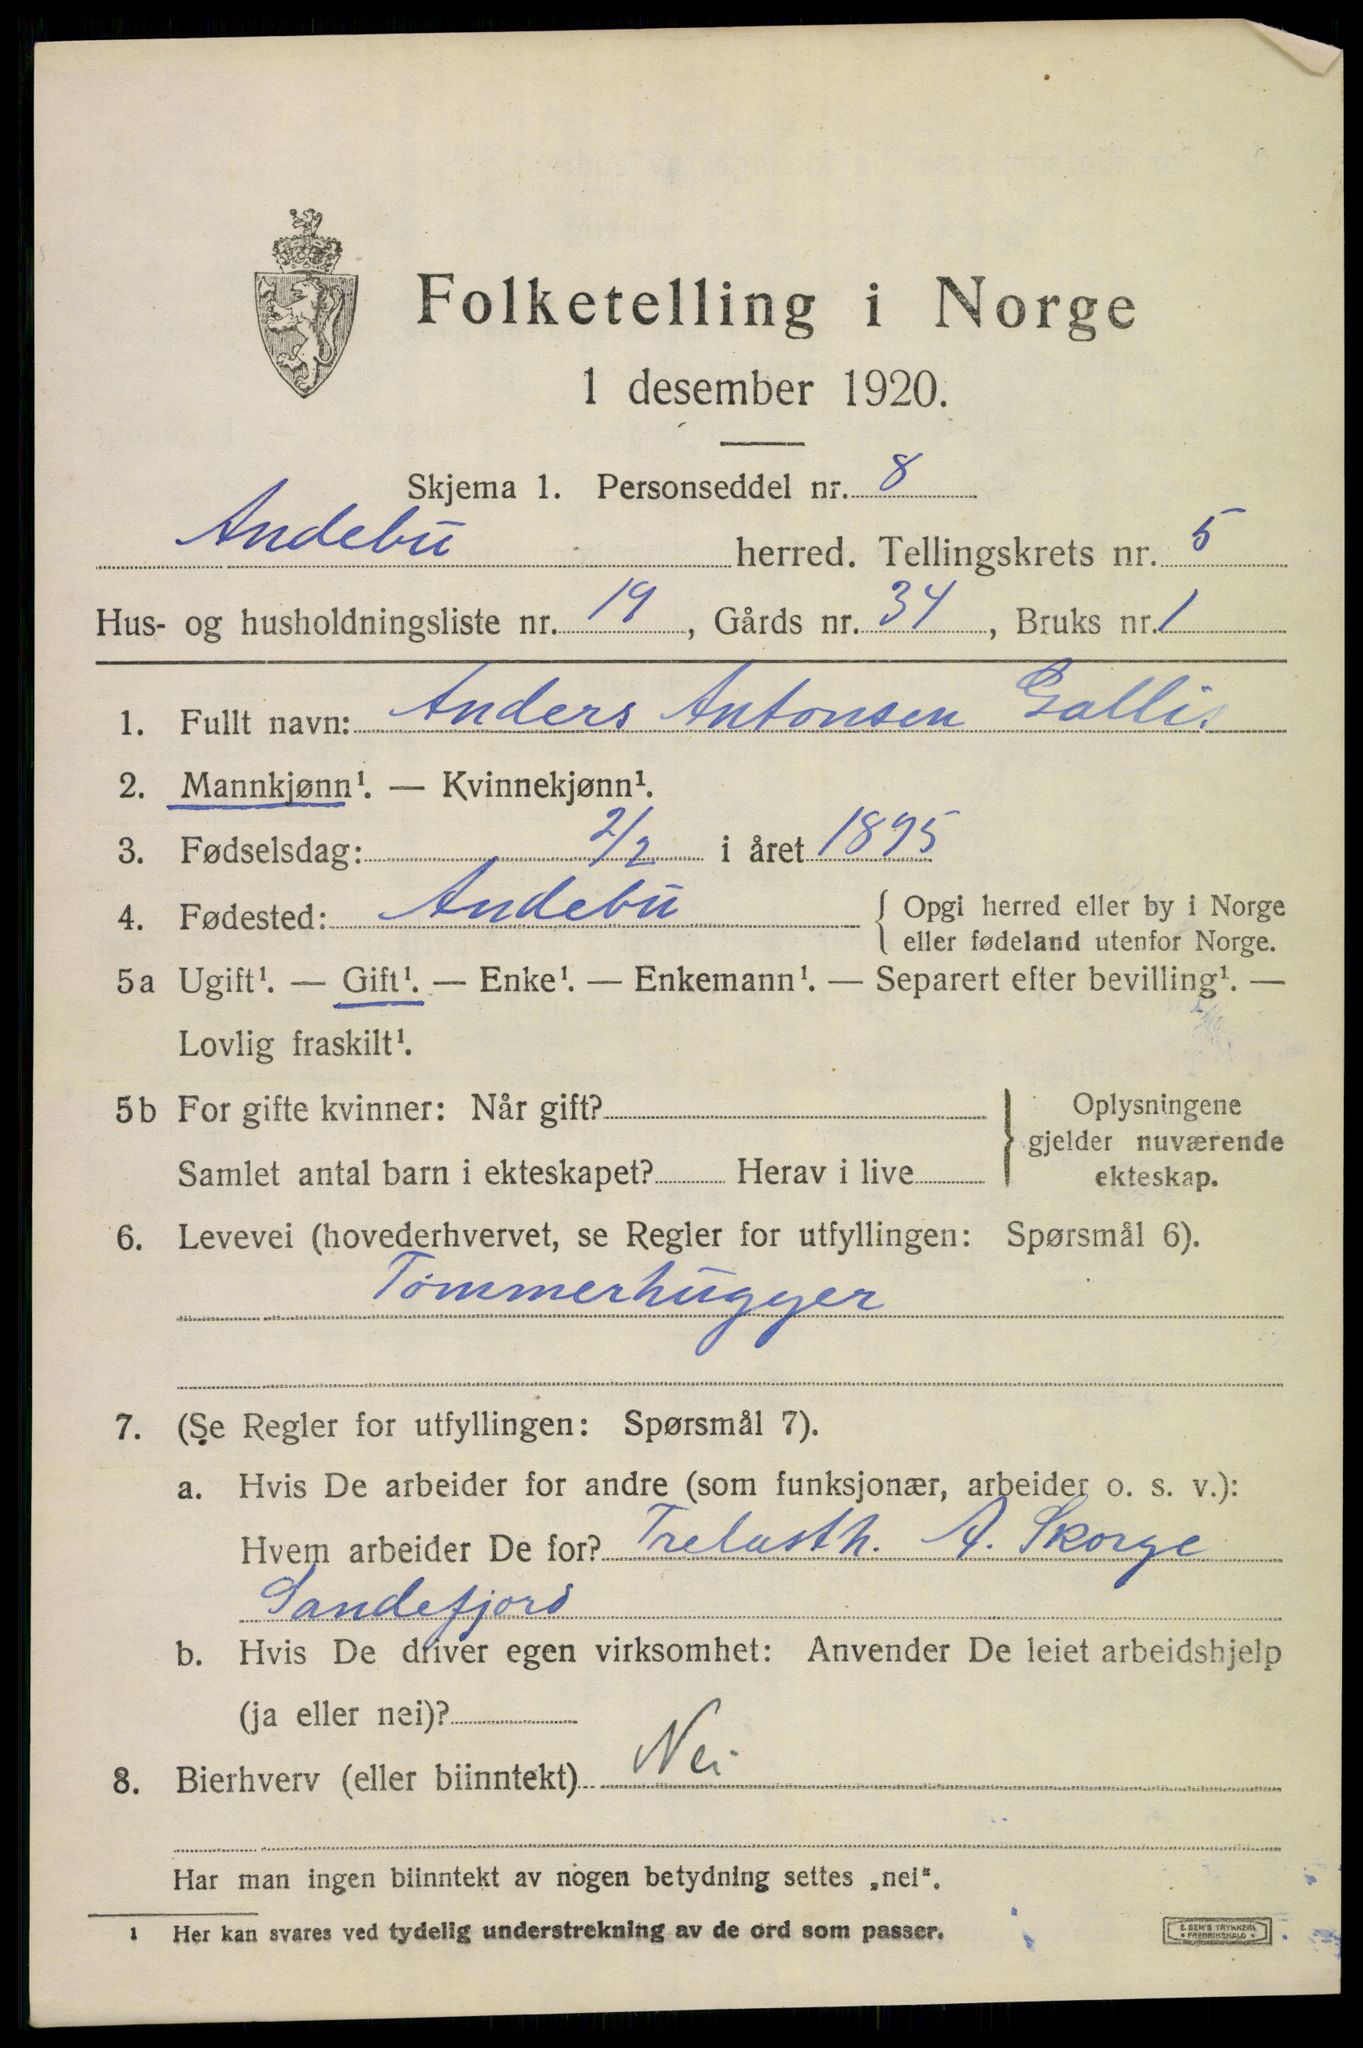 Folketelling i Norge
1 desember 1920.
Skjema 1. Personseddel nr. 8
Andebu herred. Tellingskrets nr. 5
Hus- og husholdningsliste nr. 19, Gårds nr. 34, Bruks nr. 1
1. Fullt navn: Anders Antonsen Gallis
2. Mannkjønn¹. — Kvinnekjønn¹.
3. Fødselsdag: 2/2 i året 1895
4. Fødested: Andebu { Opgi herred eller by i Norge
eller fødeland utenfor Norge.
5a Ugift¹. — Gift¹. — Enke¹. — Enkemann¹. — Separert efter bevilling¹. —
Lovlig fraskilt¹.
5b For gifte kvinner: Når gift? } Oplysningene
gjelder nuværende
Samlet antal barn i ekteskapet? Herav i live ekteskap.
6. Levevei (hovederhvervet, se Regler for utfyllingen: Spørsmål 6).
Tømmerhugger
7. (Se Regler for utfyllingen: Spørsmål 7).
a. Hvis De arbeider for andre (som funksjonær, arbeider o. s. v.):
Hvem arbeider De for? Trelasth. A. Skorge
Sandefjord
b. Hvis De driver egen virksomhet: Anvender De leiet arbeidshjelp
(ja eller nei)?
8. Bierhverv (eller biinntekt) Nei
Har man ingen biinntekt av nogen betydning settes „nei“.
1 Her kan svares ved tydelig understrekning av de ord som passer.
E. SEM'S TRYKKERI
FREDRIKSHALD